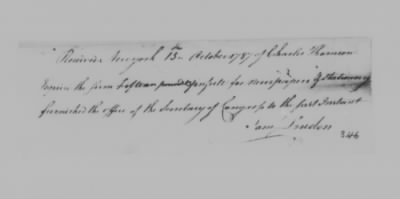 Received New York 13th October 1787 of Charles Thomson
Esquire the sum fifteen pounds for newspapers & Stationary
furnished the office of the Secretary of Congress to the first Instant
Sam Loudon
346